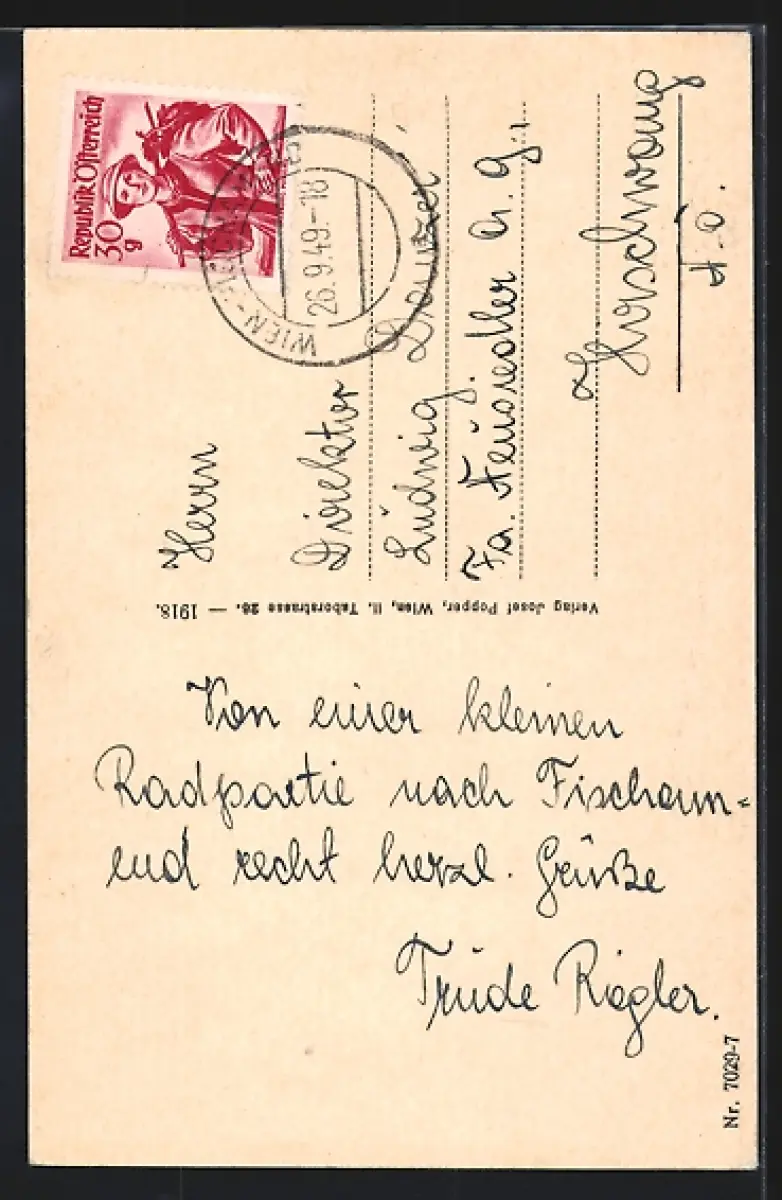 Republik Österreich
30
g
WIEN
26.9.49.-18
Herrn
Direktor
Ludwig
Fa. Neusiedler A.G.,
Hirschwang
N.Ö.
Verlag Josef Popper, Wien, II. Taborstrasse 26. — 1918.
Von einer kleinen
Radpartie nach Fischam=
end recht herzl. Grüße
Trude Riegler.
Nr. 7029-7